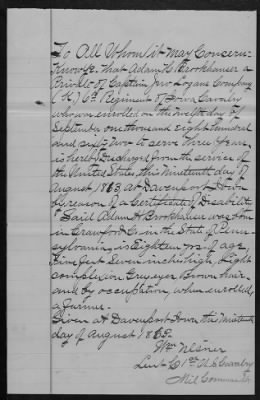 To All Whom it May Concern:
Know Ye. That Adam H. Brookhauser a
Private of Captain Jno Logans Company
(K) 6th Regiment of Iowa Cavalry
who was enrolled on the twelfth day of
September one thousand eight hundred
and sixty two to serve three Years,
is hereby Discharged from the service of
the United States, this Nineteenth day of
August 1863, at Davenport Iowa
by reason of a Certificate of Disability
Said Adam H. Brookhauser was born
in Crawford Co in the State of Penn-
sylvania, is Eighteen yrs of age,
Five feet Seven inches high, Light
complexion, Grey eyes, Brown hair,
and by occupation, when enrolled,
a Farmer.
Given at Davenport Iowa this Nineteenth
day of August 1863.
Wm
Lieut 1st U.S. Cavalry